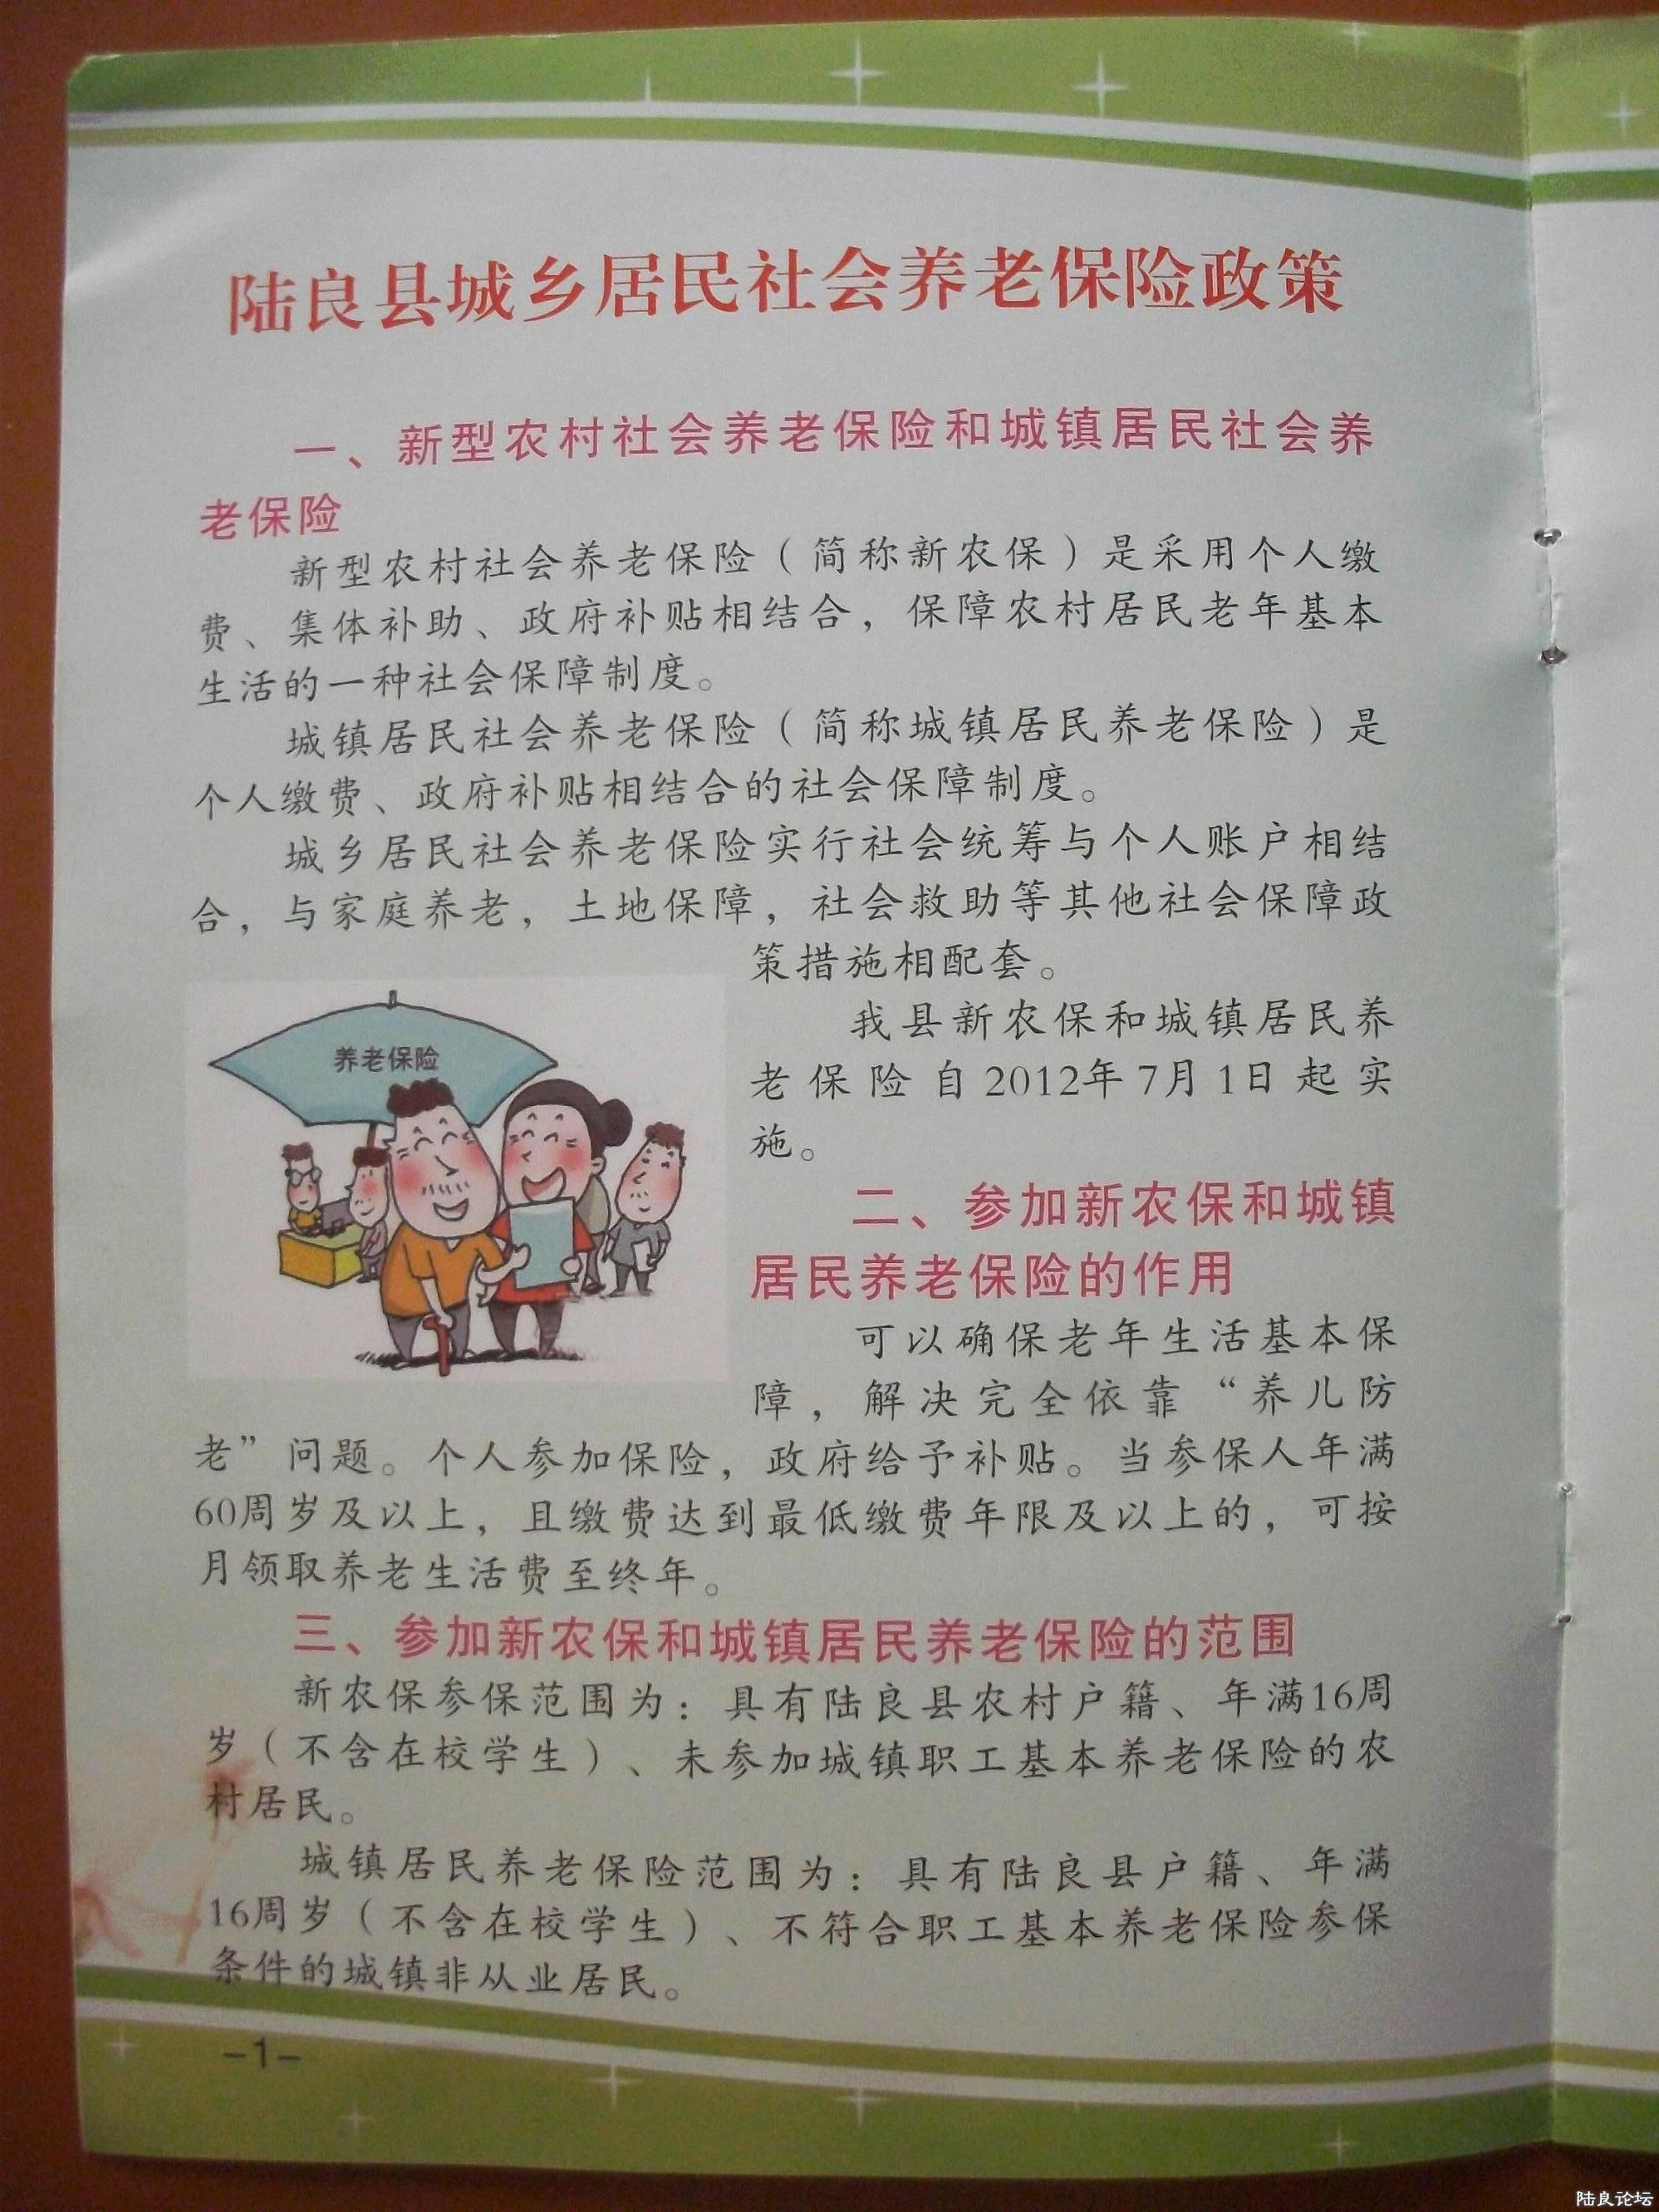 陆良县城乡居民社会养老保险政策
一、新型农村社会养老保险和城镇居民社会养
老保险
新型农村社会养老保险（简称新农保）是采用个人缴
费、集体补助、政府补贴相结合，保障农村居民老年基本
生活的一种社会保障制度。
城镇居民社会养老保险（简称城镇居民养老保险）是
个人缴费、政府补贴相结合的社会保障制度。
城乡居民社会养老保险实行社会统筹与个人账户相结
合，与家庭养老，土地保障，社会救助等其他社会保障政
策措施相配套。
我县新农保和城镇居民养
老保险自2012年7月1日起实
施。
养老保险
二、参加新农保和城镇
居民养老保险的作用
可以确保老年生活基本保
障，解决完全依靠“养儿防
老”问题。个人参加保险，政府给予补贴。当参保人年满
60周岁及以上，且缴费达到最低缴费年限及以上的，可按
月领取养老生活费至终年。
三、参加新农保和城镇居民养老保险的范围
新农保参保范围为：具有陆良县农村户籍、年满16周
岁（不含在校学生）、未参加城镇职工基本养老保险的农
村居民。
城镇居民养老保险范围为：具有陆良县户籍、年满
16周岁（不含在校学生）、不符合职工基本养老保险参保
条件的城镇非从业居民。
–1–
陆良论坛